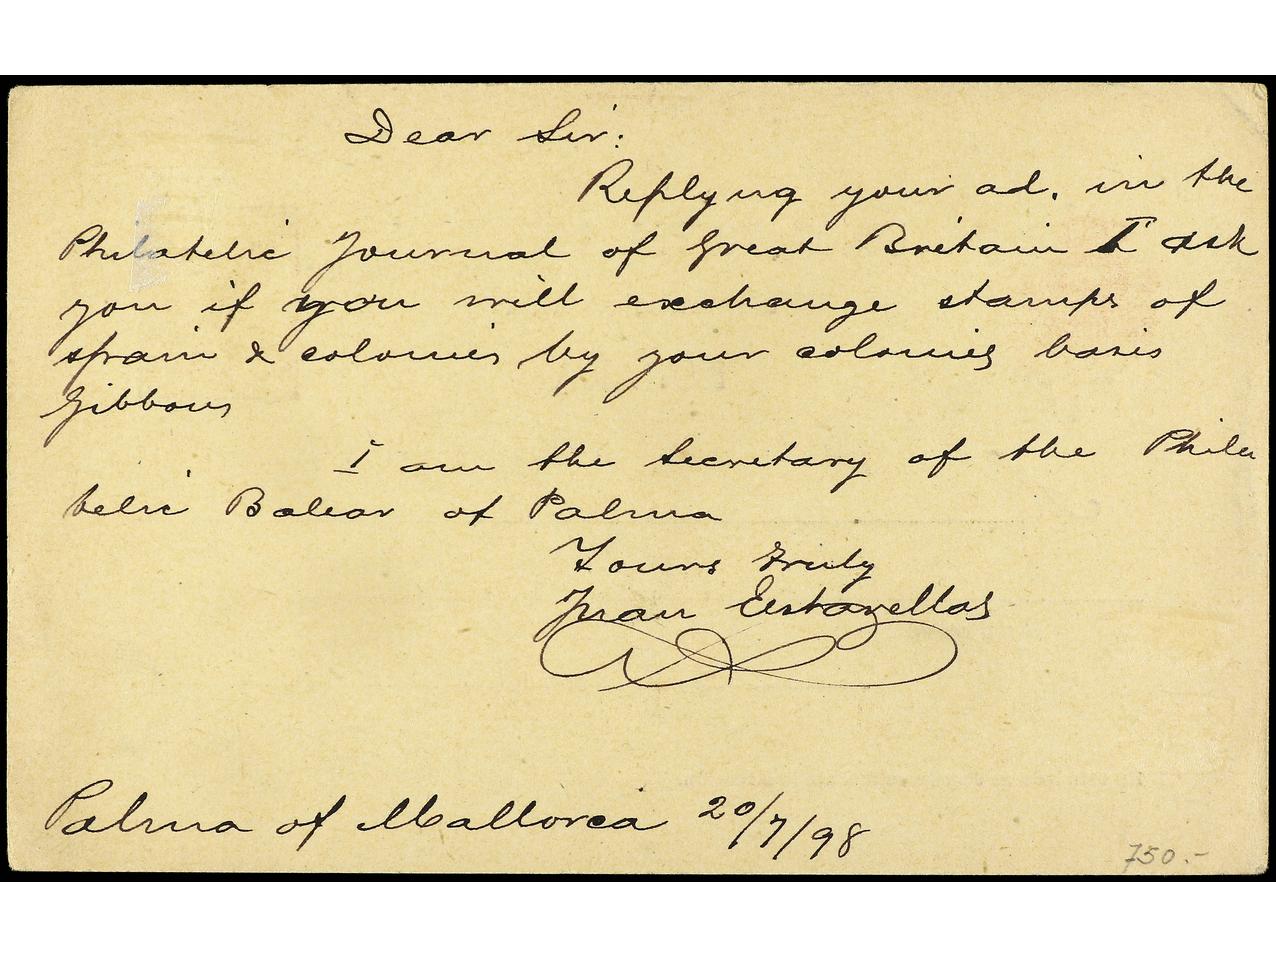 Dear Sir:
Replyng your ad. in the
Philatelic Journal of Great Britain I ask
you if you will exchange stamps of
spain & colonies by your colonies basis
Gibbons
I am the secretary of the Phila
telic Balear of Palma
Yours truly
Juan Estarellas
Palma of Mallorca 20/7/98
750.-